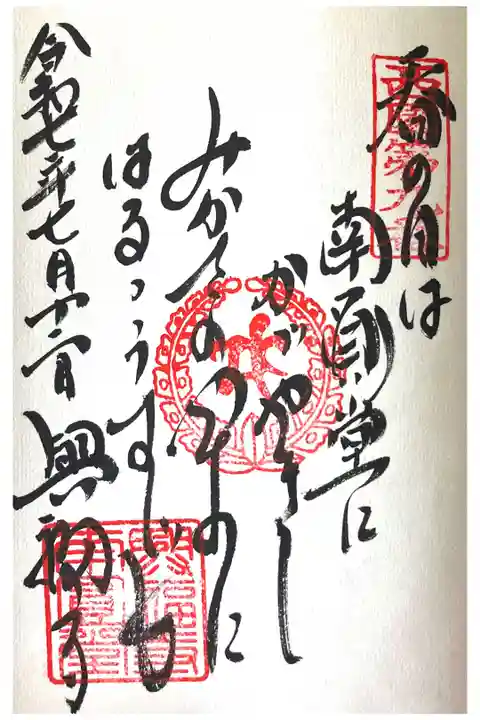 西国第九番
春の日は
南圓堂に
かゞやきて
みかさの山に
はるゝうす雲
令和七年七月十二日 興福寺